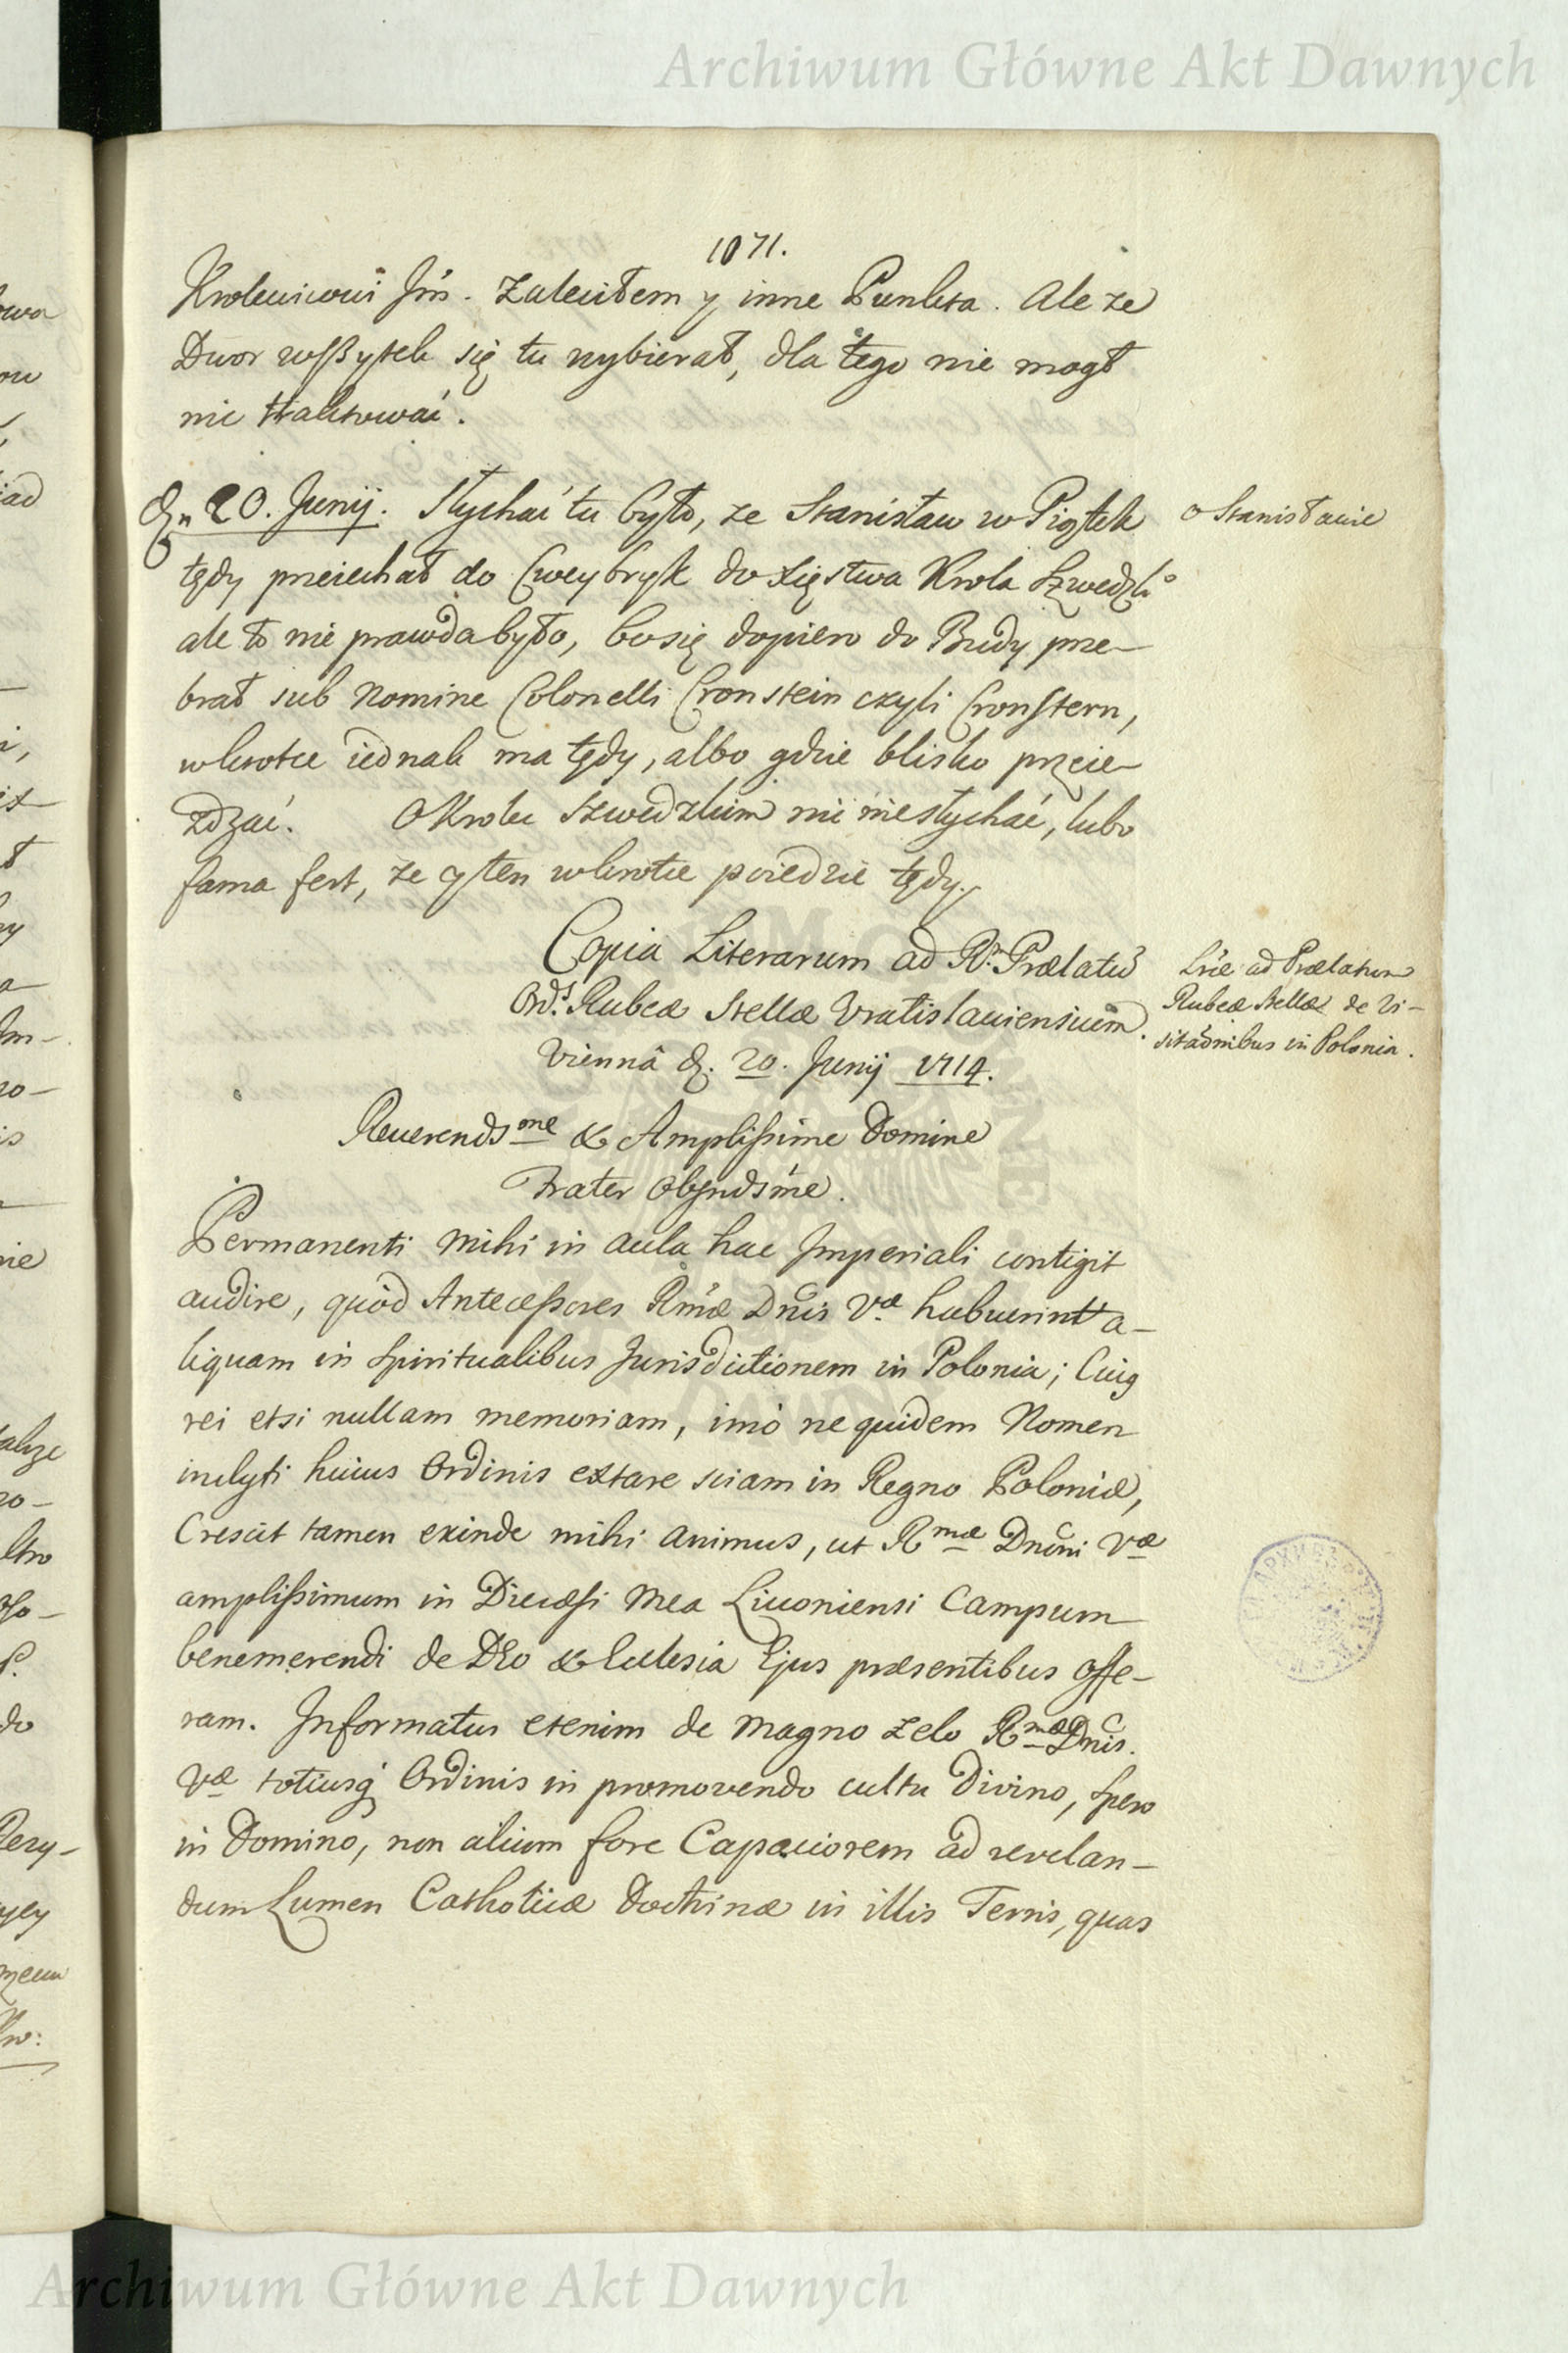 Archiwum Główne Akt Dawnych
1071.
Krolewicowi Jm̃. Zaleciłem y inne Punkta. Ale ze
Dwor wßytek się tu wybierał, dla tego nie mogł
nic traktować.
20. Junij. Słychać tu było, ze Stanisław w Piątek
o Stanisławie
tędy przeiechał do Cweybryk do Xięstwa Krola Szwedzkº
ale to nie prawda było, bo się dopiero do Budy prze-
brał sub Nomine Colonelli Cronstein czyli Cronstern,
wkrotce iednak ma tędy, albo gdzie blisko przeie-
zdzać. O Krolu Szwedzkim nic nie słychać, lubo
fama fert, ze y ten wkrotce poiedzie tędy.
Copia Literarum ad R.m Prælatũ
Ord.s Rubeæ Stellæ Vratislauiensium.
Viennâ d. 20. Junij 1714.
Lr̃æ ad Prælatum
Rubeæ Stellæ de Vi-
sitaõnibus in Polonia.
Reverendsme & Amplißime Domine
Frater Obsndsm̃e.
Permanenti mihi in aula hac Imperiali contigit
audire, quòd Anteceßores Rm̃æ Dñis Væ habuerint a-
liquam in Spiritualibus Jurisdictionem in Polonia; Cuiq
rei etsi nullam memoriam, imò ne quidem Nomen
inclyti huius Ordinis extare sciam in Regno Poloniæ,
Crescit tamen exinde mihi animus, ut Rmæ Dnõni Væ
amplißimum in Diecæsi mea Livoniensi Campum
benemerendi de DEo & Eclesia Ejus præsentibus offe-
ram. Informatus etenim de magno zelo Rmæ Dñis.
Væ totiusq Ordinis in promovendo cultu Divino, spero
in Domino, non alium fore Capaciorem ad revelan-
dum Lumen Catholicæ Doctrinæ in illis Terris, quas
Archiwum Główne Akt Dawnych